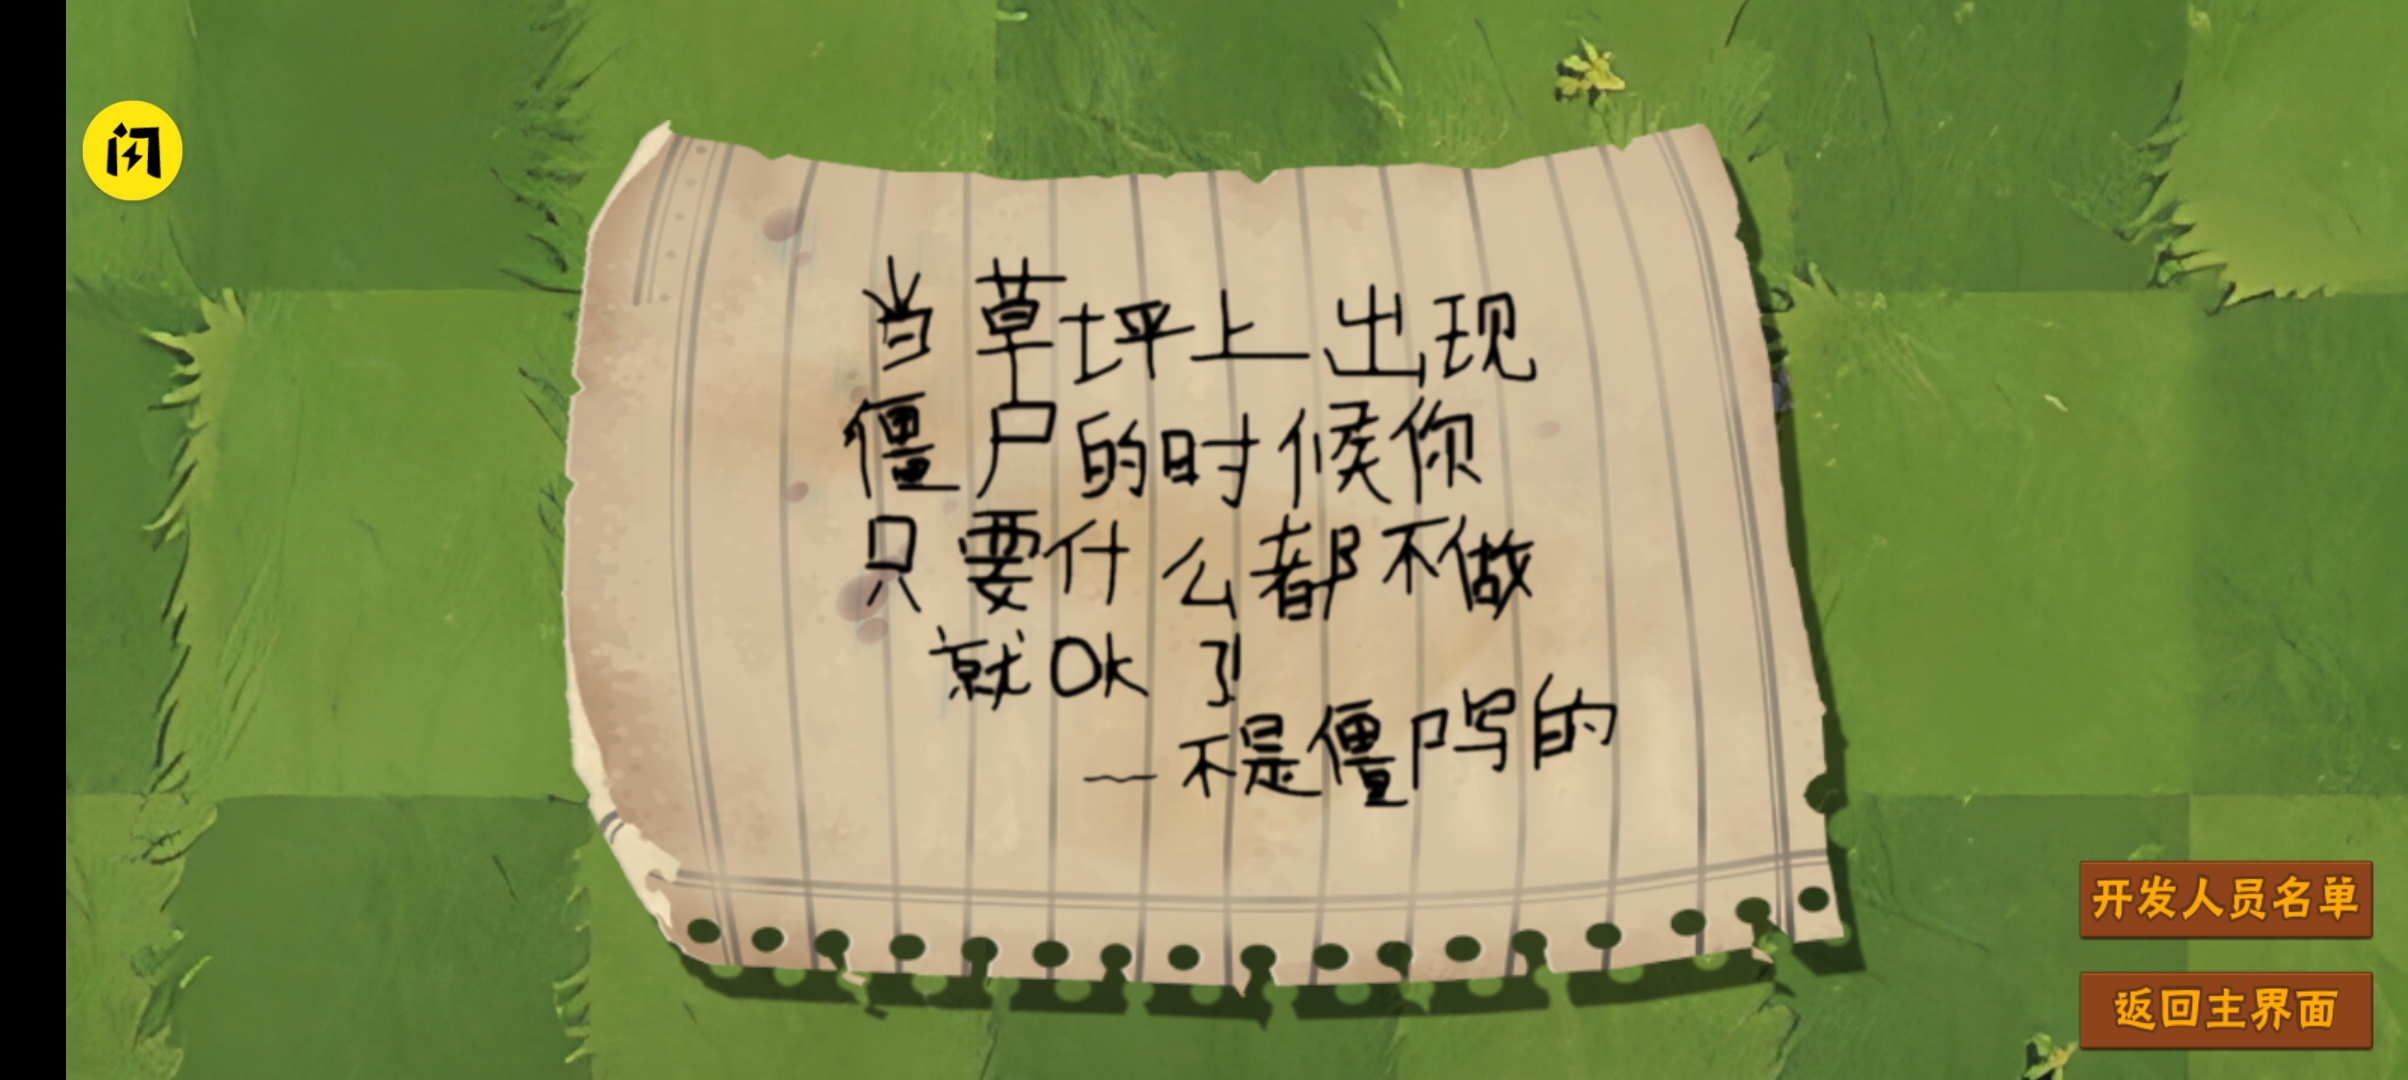 闪
当草坪上出现
僵尸的时候你
只要什么都不做
就OK了!
—不是僵尸写的
开发人员名单
返回主界面